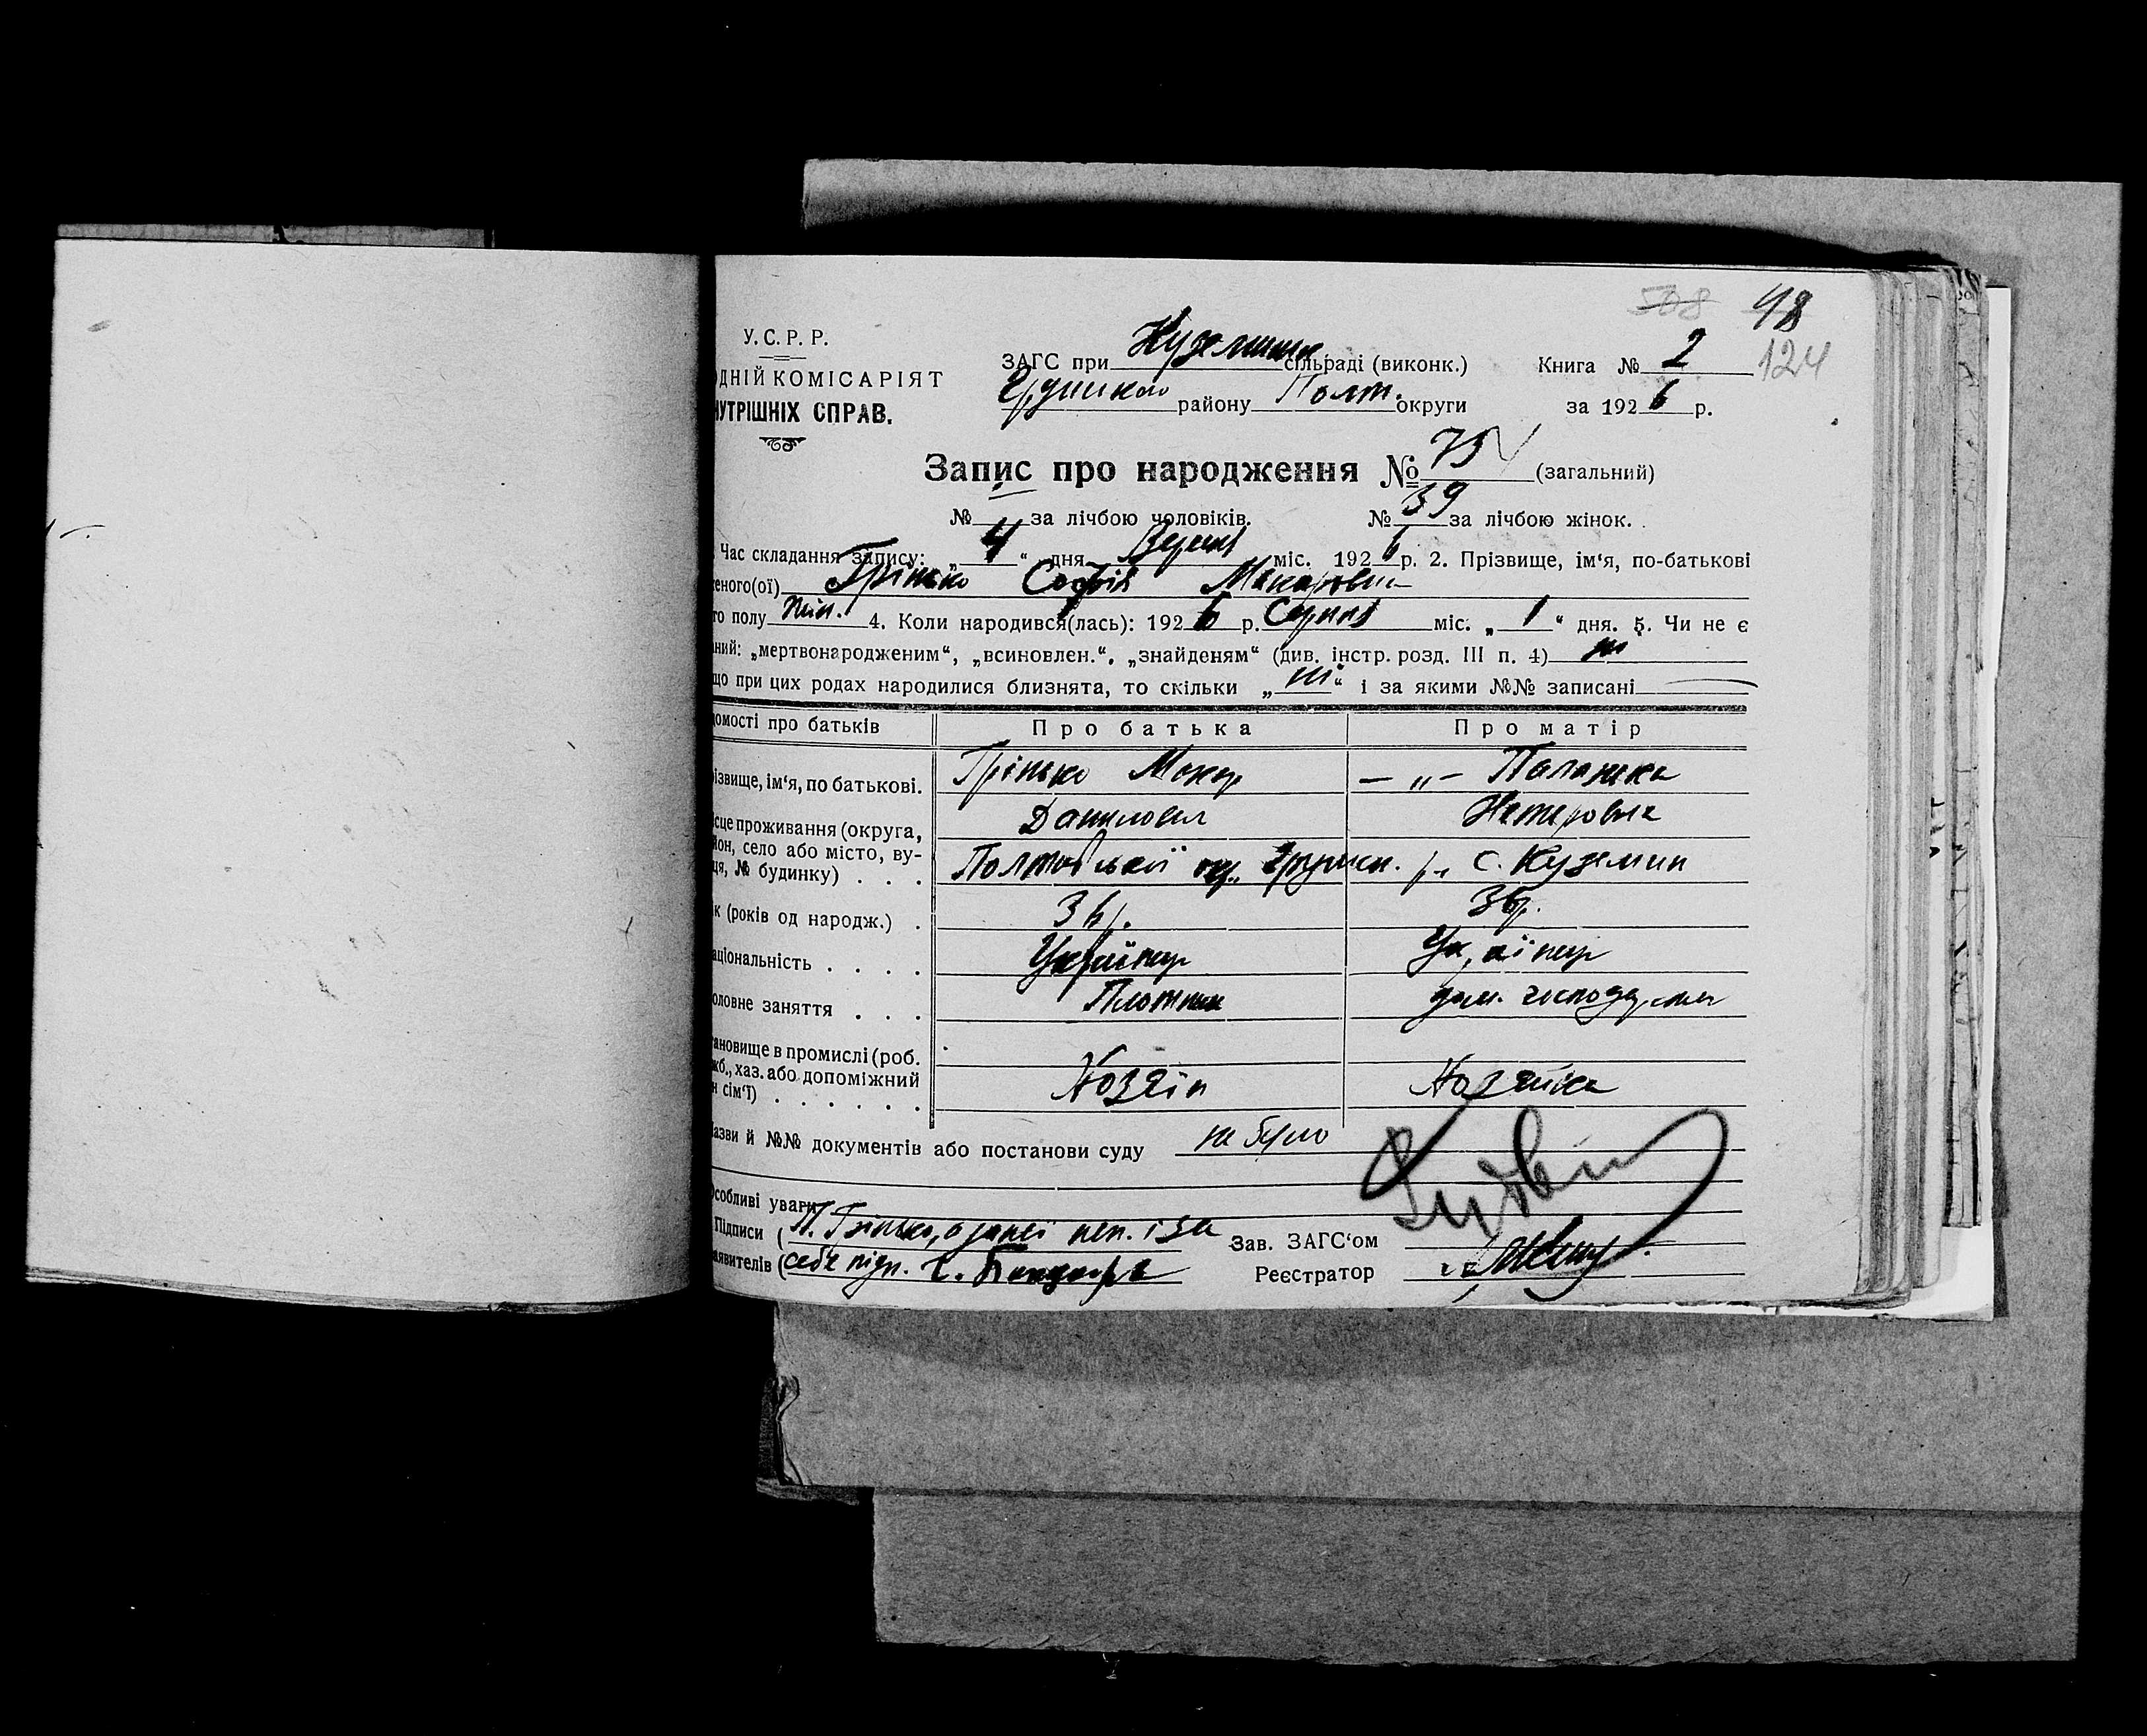 508 48
124
У. С. Р. Р.
ОДНІЙ КОМІСАРІЯТ
НУТРІШНІХ СПРАВ.
ЗАГС при сільраді (виконк.) Книга № 2
району Полт. округи за 1926 р.
Запис про народження № 75 (загальний)
№ за лічбою чоловіків. № 39 за лічбою жінок.
Час складання запису: „4“ дня Вересня міс. 1926 р. 2. Прізвище, ім‘я, по-батькові
еного(ої) Грінько Софія
го полу жін. 4. Коли народився(лась): 1926 р. Серпня міс. „1“ дня. 5. Чи не є
ний: „мертвонародженим“, „всиновлен.“, „знайденям“ (див. інстр. розд. III п. 4) ні
що при цих родах народилися близнята, то скільки „ні“ і за якими №№ записані
домості про батьків Про батька Про матір
різвище, ім‘я, по батькові. Грінько Макар — „ — Палажка
Данилович
ісце проживання (округа,
йон, село або місто, ву-
ця, № будинку) . . . Полтавської окр., с. Куземин
к (років од народж.) . 36 р. 36 р.
аціональність . . . .
оловне заняття . . . Плотник дом. господарства
тановище в промислі (роб.
жб., хаз. або допоміжний
н сім‘ї) . . . . . . Хозяїн Хозяйка
Назви й №№ документів або постанови суду не було
Особливі уваги
Підписи ( П. Грінько, а за неї неп. і за Зав. ЗАГС‘ом
аявителів ( себе підп. Бондарь Реєстратор